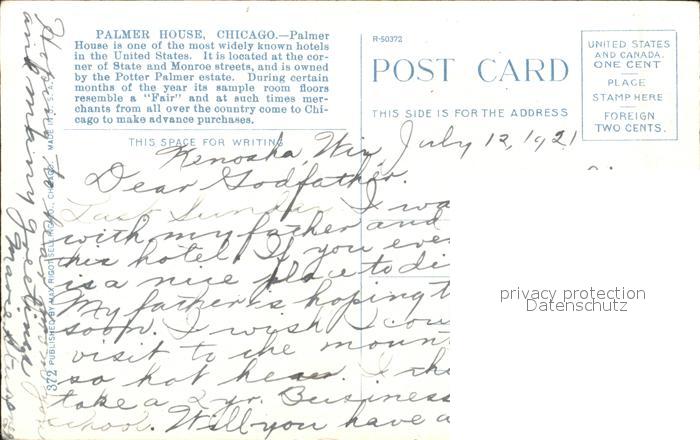 PALMER HOUSE, CHICAGO.—Palmer
House is one of the most widely known hotels
in the United States. It is located at the cor-
ner of State and Monroe streets, and is owned
by the Potter Palmer estate. During certain
months of the year its sample room floors
resemble a "Fair" and at such times mer-
chants from all over the country come to Chi-
cago to make advance purchases.
R-50372
POST CARD
THIS SIDE IS FOR THE ADDRESS
UNITED STATES
AND CANADA.
ONE CENT
PLACE
STAMP HERE
FOREIGN
TWO CENTS.
THIS SPACE FOR WRITING
Kenosha, Wis, July 12, 1921
Dear Godfather.
Last Sunday I wa
with my father and
this hotel. If you eve
is a nice place to di
My father is hoping t
soon. I wish I cou
visit to the moun
so hot here. I
take a 2 yr. Business
school. Will you have a
372 PUBLISHED BY MAX RIGOT SELLING CO., CHICAGO. MADE IN U.S.A.
and many Greetings
privacy protection
Datenschutz